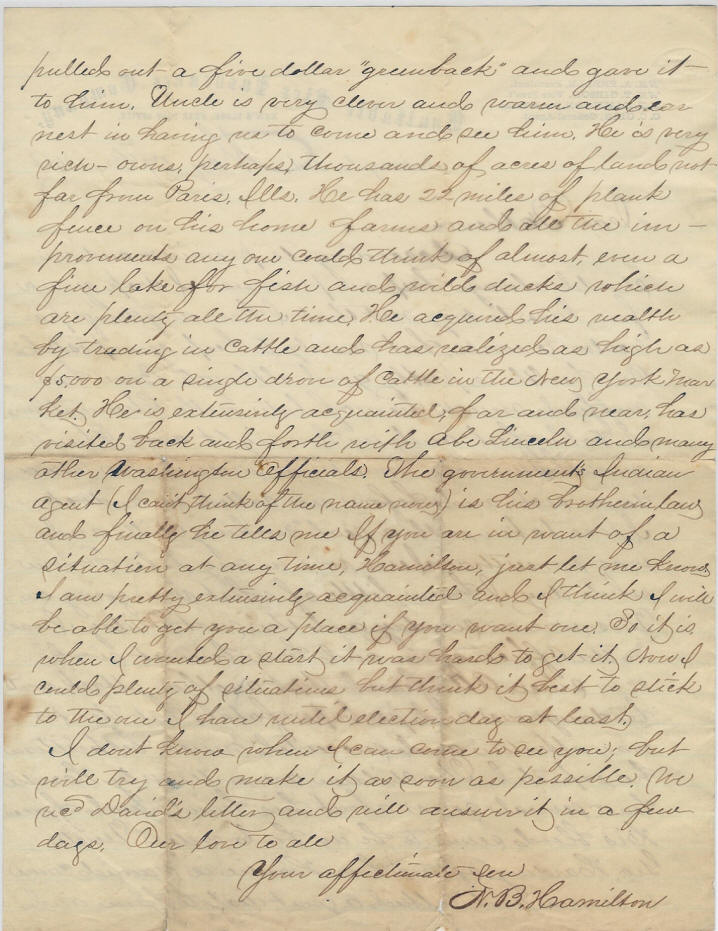 pulled out a five dollar "greenback" and gave it
to him. Uncle is very clever and warm and ear
nest in having us to come and see him. He is very
rich - owns, perhaps, thousands of acres of land not
far from Paris, Ills. He has 22 miles of plank
fence on his home farms and all the im-
provements any one could think of almost, even a
fine lake for fish and wild ducks which
are plenty all the time. He acquired his wealth
by trading in cattle and has realized as high as
$5,000 on a single drove of cattle in the New York mar
ket. He is extensively acquainted, far and near, has
visited back and forth with Abe Lincoln and many
other Washington officials. The government's Indian
agent (I can't think of the name now) is his brotherinlaw
and finally he tells me If you are in want of a
situation at any time, Hamilton, just let me know
I am pretty extensively acquainted and I think I will
be able to get you a place if you want one. So it is
when I wanted a start it was hard to get it. Now I
could plenty of situations but think it best to stick
to the one I have until election day at least.
I dont know when I can come to see you; but
will try and make it as soon as possible. We
recd David's letter and will answer it in a few
days. Our love to all
Your affectionate son
N. B. Hamilton